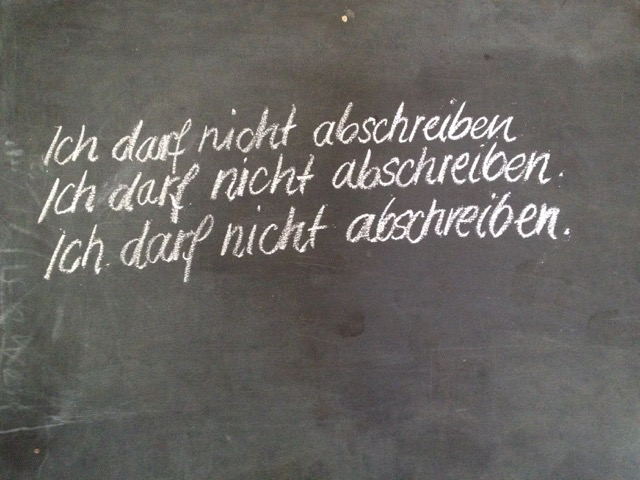 Ich darf nicht abschreiben
Ich darf nicht abschreiben.
Ich darf nicht abschreiben.